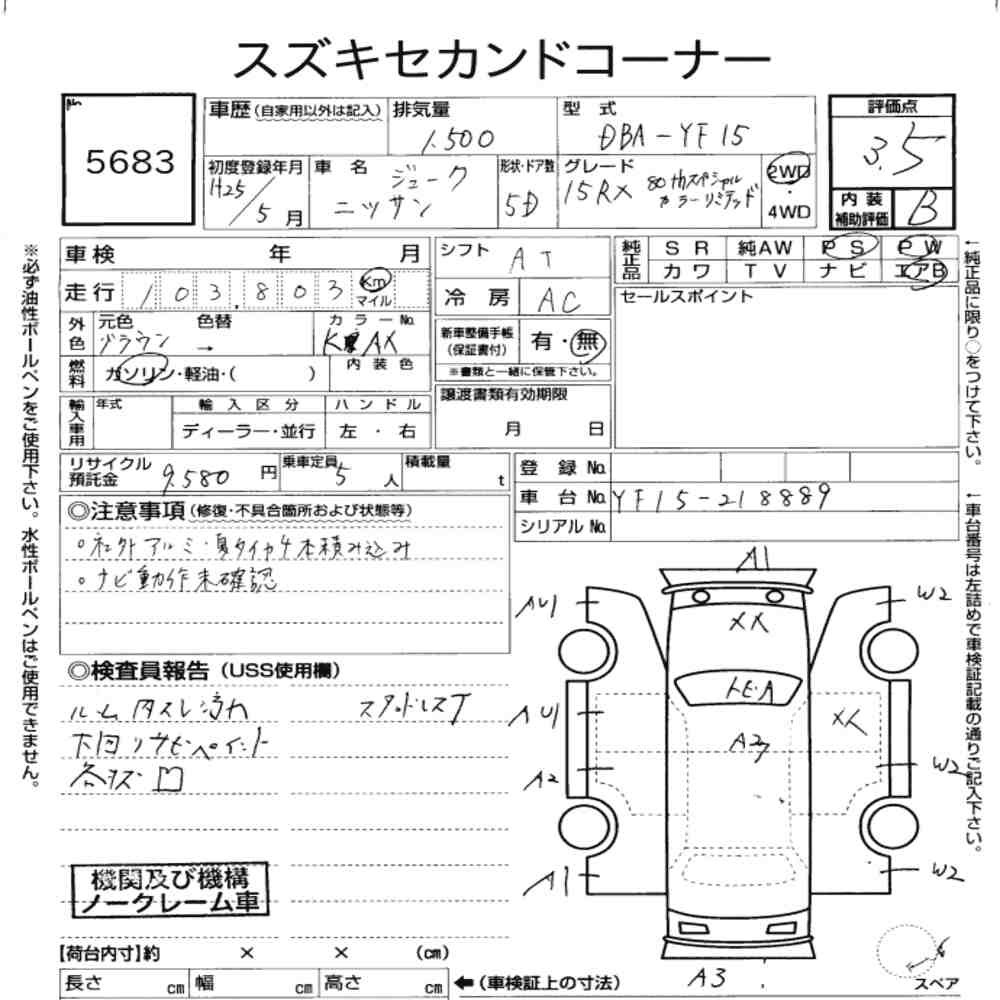 スズキセカンドコーナー
5683
車歴(自家用以外は記入)
排気量
1.500
型 式
DBA-YF15
評価点
3.5
初度登録年月
H25/5月
車 名
ジューク
ニッサン
形状・ドア数
5D
グレード
15RX 80thスペシャル
カラーリミテッド
2WD
・
4WD
内 装
補助評価
B
車検 年 月
シフト
AT
純正品
SR 純AW PS PW
カワ TV ナビ エアB
走行 103.803 Km
マイル
冷 房 AC
セールスポイント
外色
元色 色替
ブラウン →
カラーNo.
KAX
新車整備手帳
(保証書付)
有・無
※書類と一緒に保管下さい。
燃料
ガソリン・軽油・( )
内 装 色
譲渡書類有効期限
月 日
輸入車用
年式
輸 入 区 分
ディーラー・並行
ハ ン ド ル
左 ・ 右
リサイクル
預託金
9.580 円
乗車定員
5 人
積載量
t
登 録 No.
車 台 No. YF15-218889
シリアル No.
◎注意事項(修復・不具合箇所および状態等)
○社外アルミ・夏タイヤ4本積み込み
○ナビ動作未確認
◎検査員報告(USS使用欄)
ルーム内スレ汚れ スタッドレスT
下回りサビペイント
各キズ凹
機関及び機構
ノークレーム車
【荷台内寸】約 × × (cm)
長さ cm 幅 cm 高さ cm
←(車検証上の寸法)
※必ず油性ボールペンをご使用下さい。水性ボールペンはご使用できません。
←純正品に限り○をつけて下さい。
←車台番号は左詰めで車検証記載の通りご記入下さい。
A1
AU1
W2
XX
トビA
AU1
A3
XX
A2
W2
A1
W2
A3
スペア